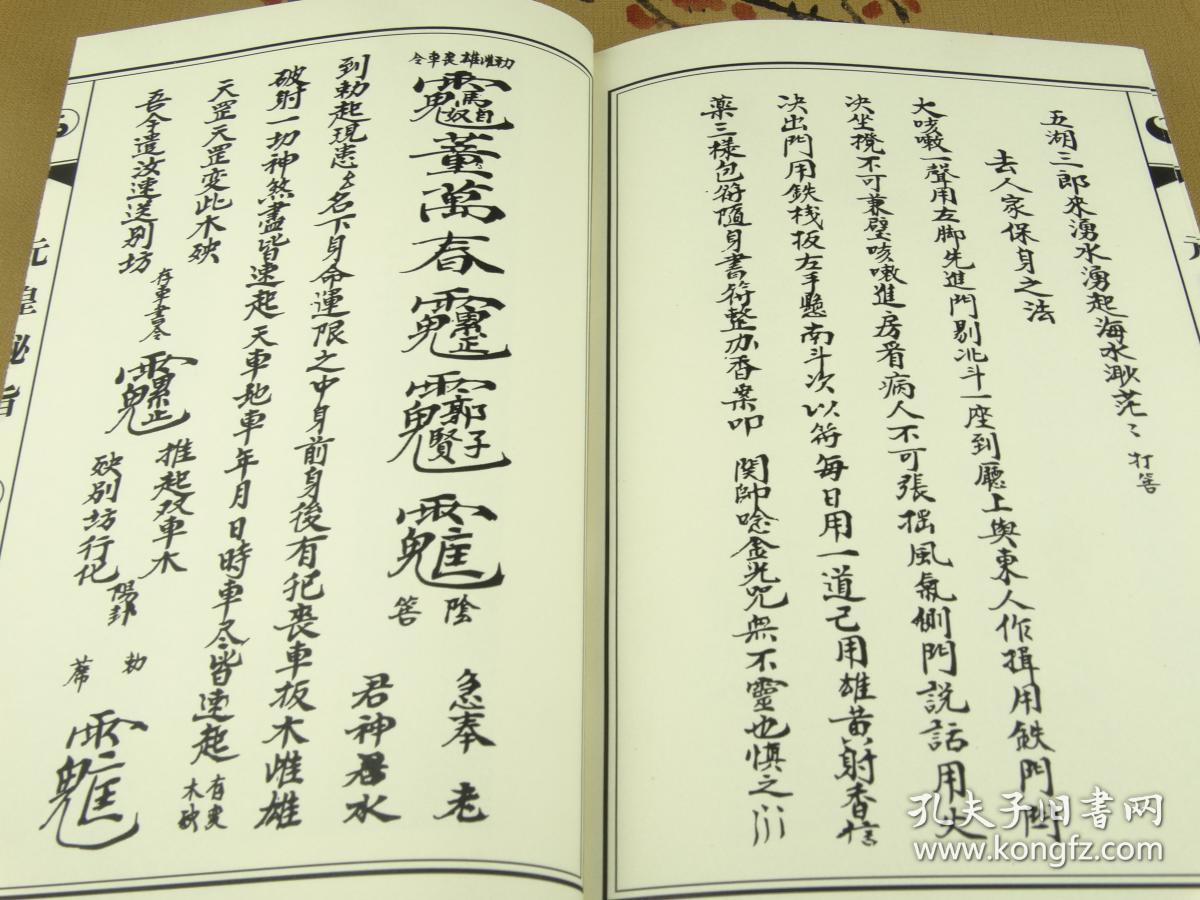 五湖三郎來湧水湧起海水渺茫〻 打筶
去人家保身之法
大咳嗽一聲用左脚先進門剔北斗一座到廳上與東人作揖用鉄門閂
决坐攪不可兼壁咳嗽進房看病人不可張揺風氣側門説話用火
决出門用鉄栈板左手懸南斗次以符每日用一道己用雄黄射香信
薬三樣包符隨身書符整办香案叩 関帥唸金光咒無不靈也慎之
勅雌雄喪車令
董萬春
郭子賢
陰筶
急奉老
君神君水
到勅起現患名下身命運限之中身前身後有犯喪車板木雌雄
破射一切神煞盡皆速起天車地車年月日時車尽皆速起 有喪木殃
天罡天罡变此木殃
吾今遣汝速送别坊 存車書令
推起双車木
殃别坊行化 陽卦
勅
蓆
元皇秘旨
孔夫子旧書网
www.kongfz.com